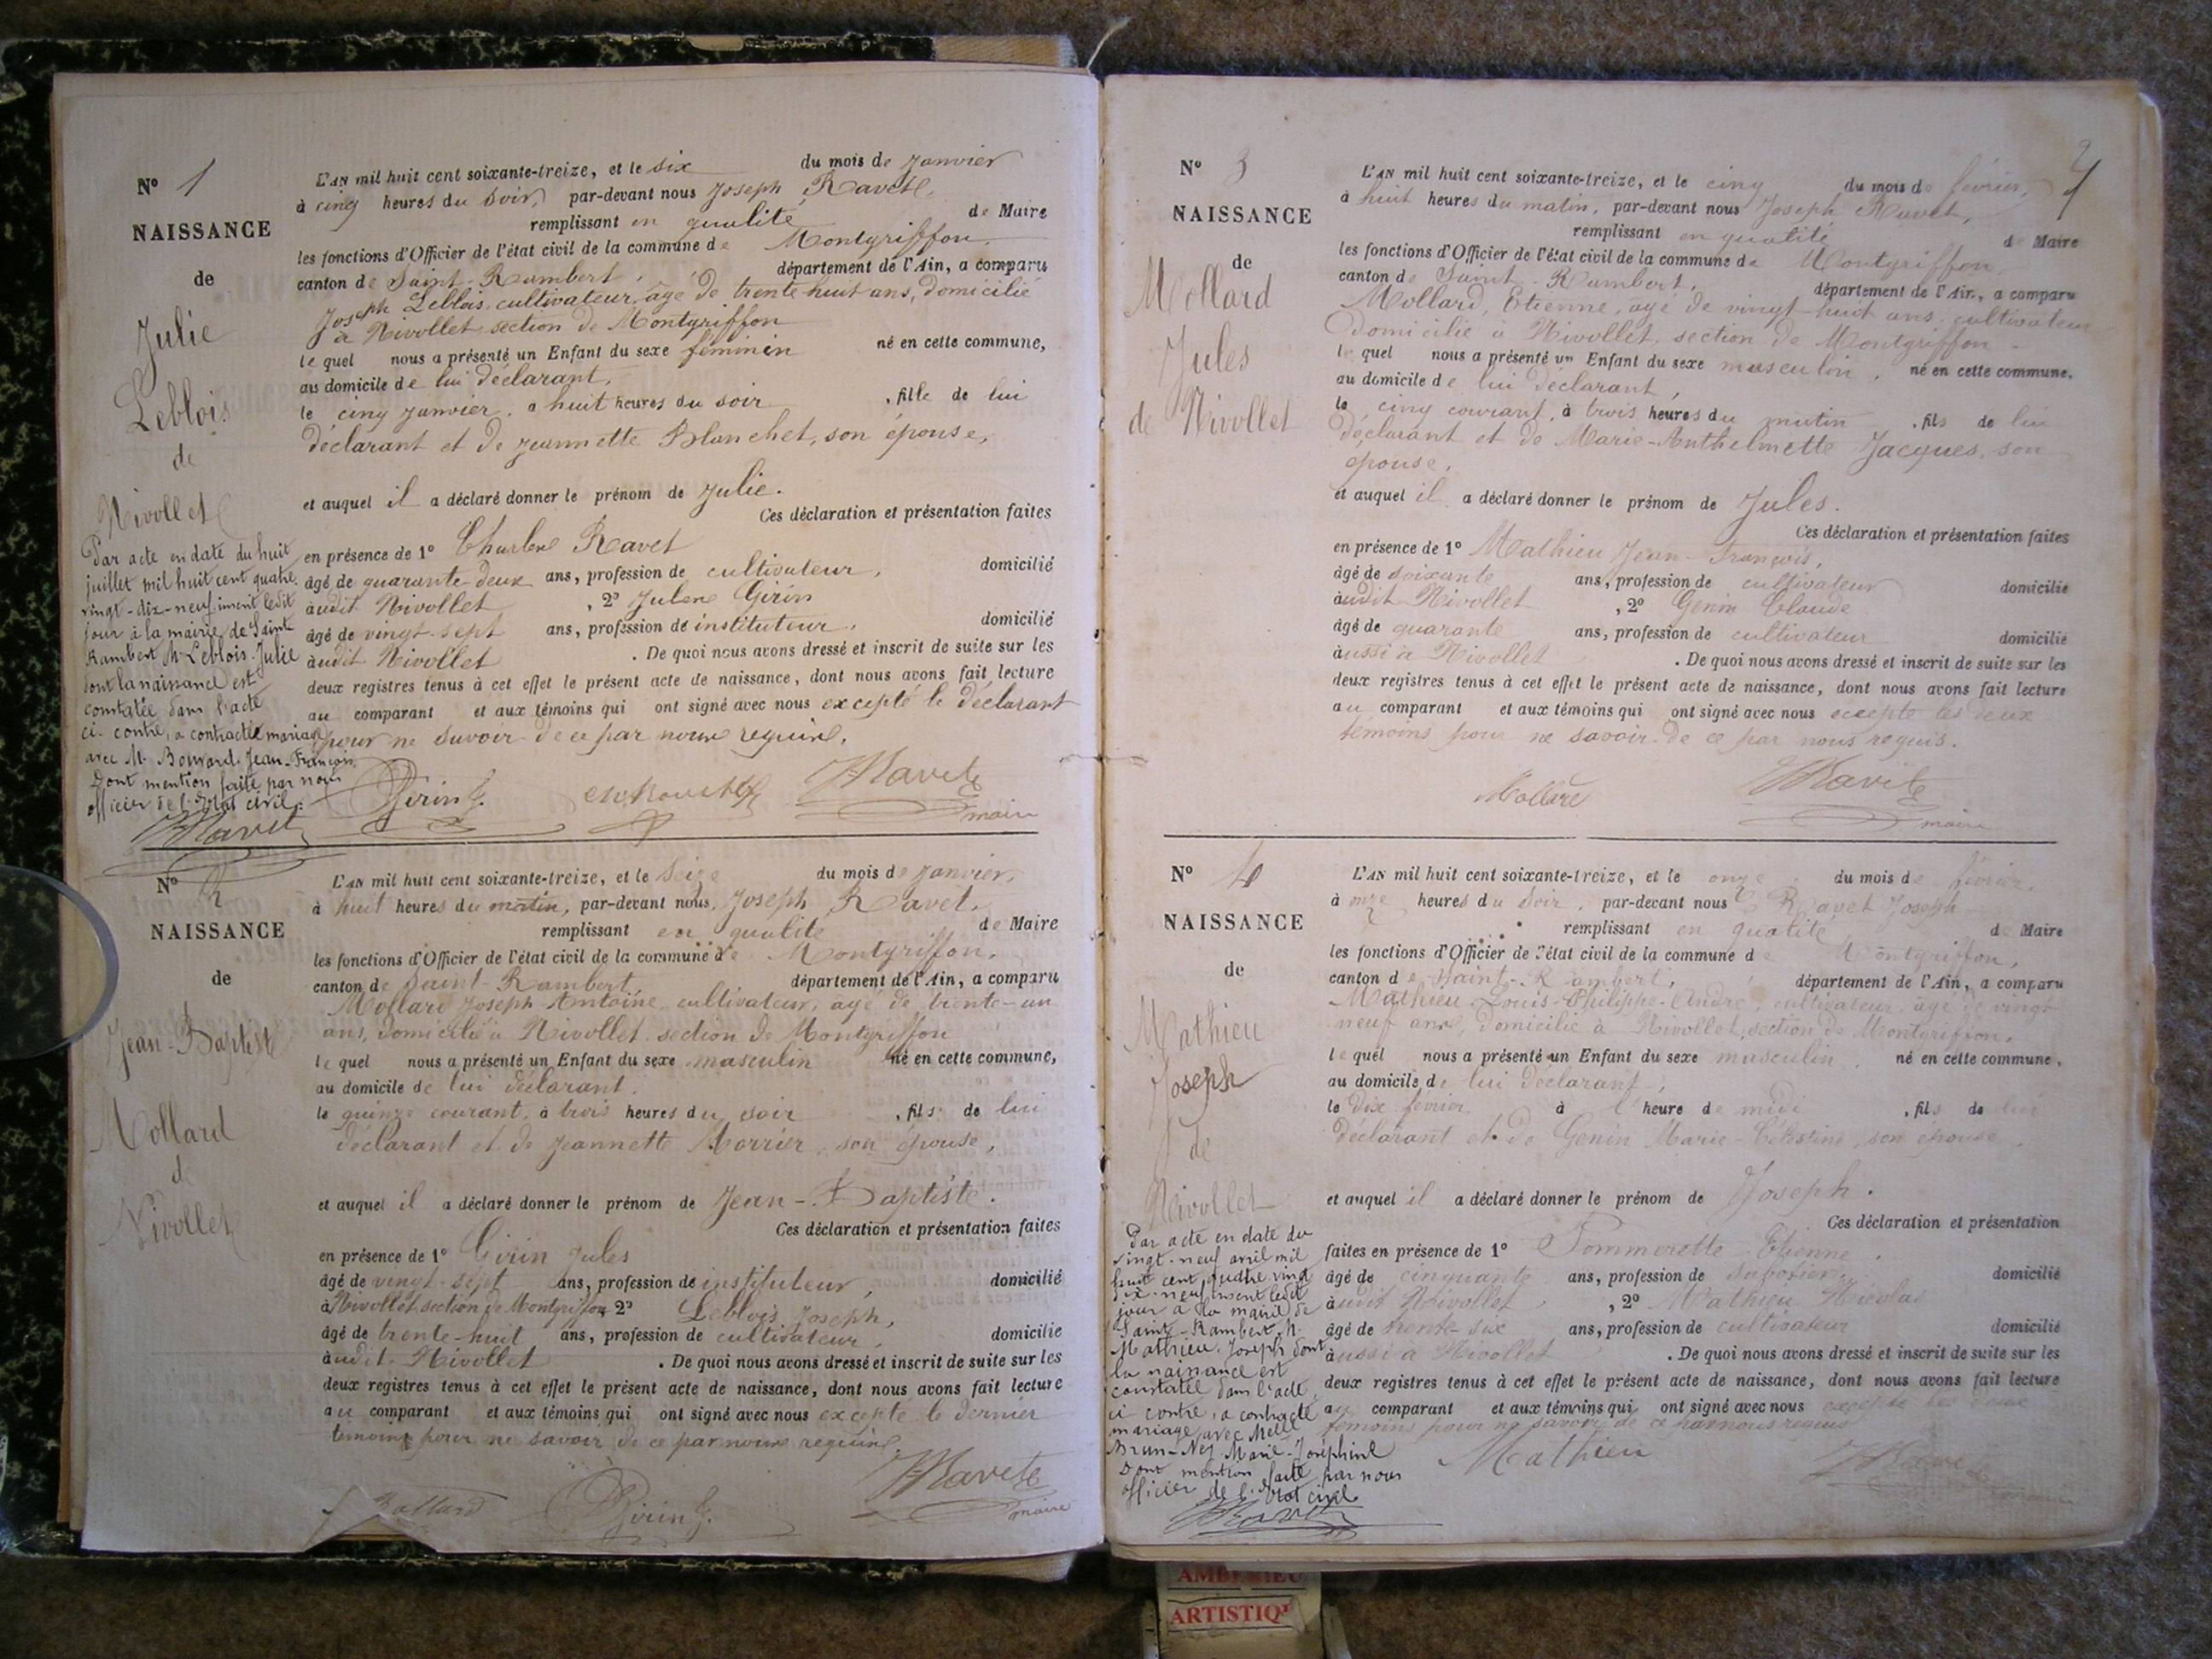 N° 1
NAISSANCE
de
Julie
Leblois
de
Nivollet
Par acte en date du huit
juillet mil huit cent quatre
vingt-dix-neuf inscrit ledit
jour à la mairie de Saint
Rambert Mlle Leblois Julie
dont la naissance est
constatée dans l'acte
ci-contre, a contracté mariage
avec M. Bouvard Jean-François
Dont mention faite par nous
officier de l'état civil.
Ravet
L'AN mil huit cent soixante-treize, et le six du mois de janvier
à cinq heures du soir, par-devant nous Joseph Ravet,
remplissant en qualité de Maire
les fonctions d'Officier de l'état civil de la commune de Montgriffon,
canton de Saint-Rambert, département de l'Ain, a comparu
Joseph Leblois, cultivateur, âgé de trente huit ans, domicilié
à Nivollet section de Montgriffon
lequel nous a présenté un Enfant du sexe féminin né en cette commune,
au domicile de lui déclarant,
le cinq janvier, à huit heures du soir, fille de lui
déclarant et de Jeannette Blanchet, son épouse,
et auquel il a déclaré donner le prénom de Julie.
Ces déclaration et présentation faites
en présence de 1° Ravet
âgé de quarante-deux ans, profession de cultivateur, domicilié
audit Nivollet, 2° Girin
âgé de vingt-sept ans, profession de instituteur, domicilié
audit Nivollet. De quoi nous avons dressé et inscrit de suite sur les
deux registres tenus à cet effet le présent acte de naissance, dont nous avons fait lecture
au comparant et aux témoins qui ont signé avec nous excepté le déclarant
pour ne savoir de ce par nous requis.
Girin J. Ravet
maire
N° 2
NAISSANCE
de
Jean-Baptiste
Mollard
de
Nivollet
L'AN mil huit cent soixante-treize, et le seize du mois de janvier,
à huit heures du matin, par-devant nous, Joseph Ravet,
remplissant en qualité de Maire
les fonctions d'Officier de l'état civil de la commune de Montgriffon,
canton de Saint-Rambert, département de l'Ain, a comparu
Mollard Joseph-Antoine, cultivateur, âgé de trente-un
ans, domicilié à Nivollet section de Montgriffon
lequel nous a présenté un Enfant du sexe masculin né en cette commune,
au domicile de lui déclarant.
le quinze courant, à trois heures du soir, fils de lui
déclarant et de Jeannette Morrier, son épouse,
et auquel il a déclaré donner le prénom de Jean-Baptiste.
Ces déclaration et présentation faites
en présence de 1° Girin Jules
âgé de vingt-sept ans, profession de instituteur, domicilié
à Nivollet, section de Montgriffon, 2° Leblois Joseph,
âgé de trente-huit ans, profession de cultivateur, domicilié
audit Nivollet. De quoi nous avons dressé et inscrit de suite sur les
deux registres tenus à cet effet le présent acte de naissance, dont nous avons fait lecture
au comparant et aux témoins qui ont signé avec nous excepté le dernier
témoin pour ne savoir de ce par nous requis.
Mollard Girin J. Ravet
maire
N° 3
NAISSANCE
de
Mollard
Jules
de Nivollet
L'AN mil huit cent soixante-treize, et le cinq du mois de février,
à huit heures du matin, par-devant nous Joseph Ravet,
remplissant en qualité de Maire
les fonctions d'Officier de l'état civil de la commune de Montgriffon,
canton de Saint-Rambert, département de l'Ain, a comparu
Mollard, Etienne, âgé de vingt-huit ans, cultivateur
domicilié à Nivollet, section de Montgriffon
lequel nous a présenté un Enfant du sexe masculin, né en cette commune,
au domicile de lui déclarant,
le cinq courant, à trois heures du matin, fils de lui
déclarant et de Marie-Anthelmette Jacques, son
épouse,
et auquel il a déclaré donner le prénom de Jules.
Ces déclaration et présentation faites
en présence de 1° Mathieu Jean-François,
âgé de soixante ans, profession de cultivateur domicilié
audit Nivollet, 2° Genin Claude
âgé de quarante ans, profession de cultivateur domicilié
aussi à Nivollet. De quoi nous avons dressé et inscrit de suite sur les
deux registres tenus à cet effet le présent acte de naissance, dont nous avons fait lecture
au comparant et aux témoins qui ont signé avec nous excepté les deux
témoins pour ne savoir de ce par nous requis.
Mollard Ravet
maire
N° 4
NAISSANCE
de
Mathieu
Joseph
de
Nivollet
Par acte en date du
vingt-neuf avril mil
huit cent quatre vingt
dix-neuf inscrit ledit
jour à la mairie de
Saint-Rambert M.
Mathieu Joseph dont
la naissance est
constatée dans l'acte
ci contre, a contracté
mariage avec Melle
Brun-Ney Marie-Joséphine
Dont mention faite par nous
officier de l'état civil.
Ravet
L'AN mil huit cent soixante-treize, et le onze du mois de février,
à onze heures du soir, par-devant nous Ravet Joseph
remplissant en qualité de Maire
les fonctions d'Officier de l'état civil de la commune de Montgriffon,
canton de Saint-Rambert, département de l'Ain, a comparu
Mathieu Louis-Philippe-André, cultivateur, âgé de vingt
neuf ans, domicilié à Nivollet, section de Montgriffon,
lequel nous a présenté un Enfant du sexe masculin né en cette commune,
au domicile de lui déclarant,
le dix février à l'heure de midi, fils de lui
déclarant et de Genin Marie-Célestine, son épouse
et auquel il a déclaré donner le prénom de Joseph.
Ces déclaration et présentation
faites en présence de 1° Pommerette Etienne
âgé de cinquante ans, profession de sabotier domicilié
audit Nivollet, 2° Mathieu Nicolas
âgé de trente-six ans, profession de cultivateur domicilié
aussi à Nivollet. De quoi nous avons dressé et inscrit de suite sur les
deux registres tenus à cet effet le présent acte de naissance, dont nous avons fait lecture
au comparant et aux témoins qui ont signé avec nous excepté les deux
témoins pour ne savoir de ce par nous requis
Mathieu Ravet
AMBERIEU
ARTISTIQUE